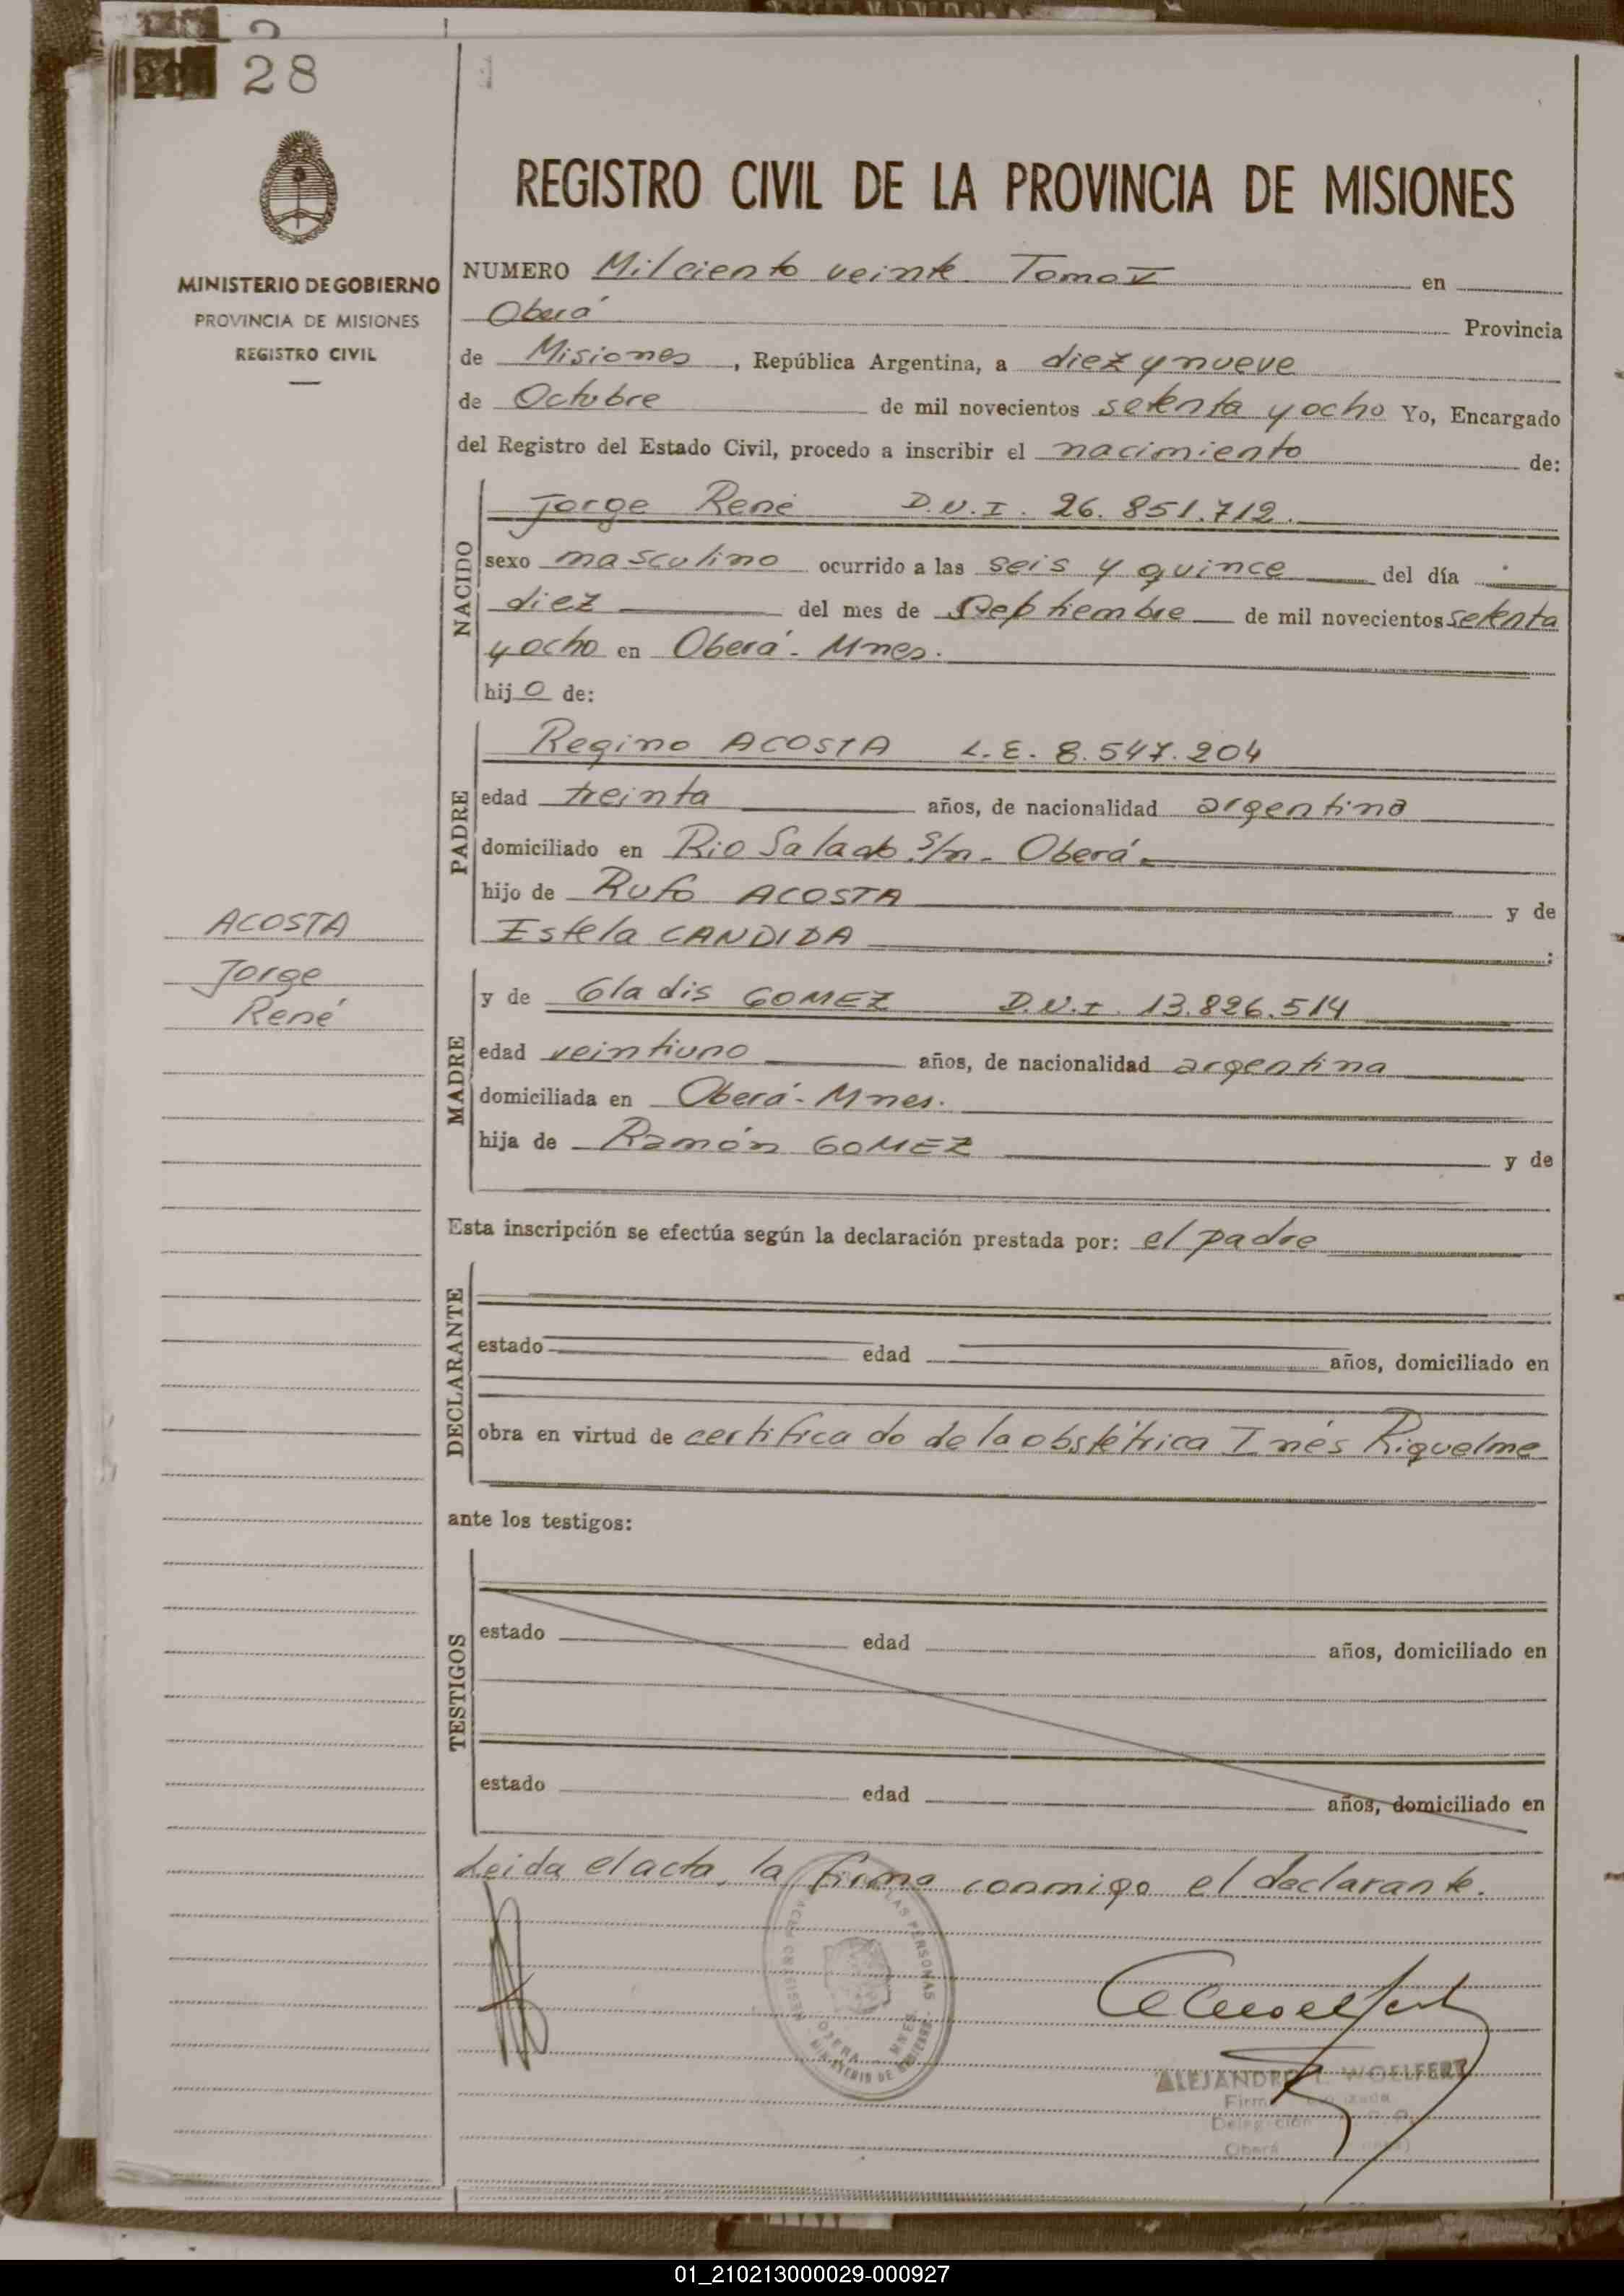 28
MINISTERIO DE GOBIERNO
PROVINCIA DE MISIONES
REGISTRO CIVIL
REGISTRO CIVIL DE LA PROVINCIA DE MISIONES
NUMERO Mil ciento veinte. Tomo V en
Oberá Provincia
de Misiones, República Argentina, a diez y nueve
de Octubre de mil novecientos setenta y ocho Yo, Encargado
del Registro del Estado Civil, procedo a inscribir el nacimiento de:
NACIDO
Jorge René D.N.I. 26.851.712.
sexo masculino ocurrido a las seis y quince del día
diez del mes de Septiembre de mil novecientos setenta
y ocho en Oberá - Mnes.
hijo de:
PADRE
Regino ACOSTA L.E. 8.547.204
edad treinta años, de nacionalidad argentina
domiciliado en Rio Salado S/n. Oberá.
hijo de Rufo ACOSTA y de
Estela CANDIDA ;
ACOSTA
Jorge
René
MADRE
y de Gladis GOMEZ D.N.I. 13.826.514
edad veintiuno años, de nacionalidad argentina
domiciliada en Oberá - Mnes.
hija de Ramón GOMEZ y de
Esta inscripción se efectúa según la declaración prestada por: el padre
DECLARANTE
estado edad años, domiciliado en
obra en virtud de certificado de la obstétrica Inés Riquelme
ante los testigos:
TESTIGOS
estado edad años, domiciliado en
estado edad años, domiciliado en
Leida el acta, la firma conmigo el declarante.
LAS PERSONAS
OBERA MNES.
MINISTERIO DE GOBIERNO
ALEJANDRO WOELFERT
Oberá
01_210213000029-000927